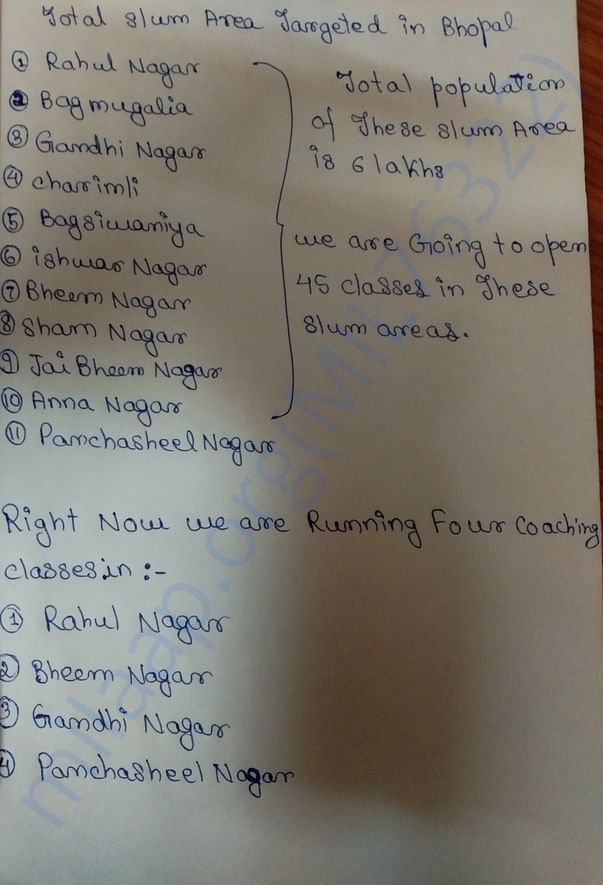 Total slum Area Targeted in Bhopal
① Rahul Nagar
② Bagmugalia
③ Gandhi Nagar
④ charimli
⑤ Bagsiwaniya
⑥ ishwar Nagar
⑦ Bheem Nagar
⑧ Sham Nagar
⑨ Jai Bheem Nagar
⑩ Anna Nagar
⑪ Panchasheel Nagar
Total population
of These slum Area
is 6 lakhs
we are Going to open
45 classes in These
slum areas.
Right Now we are Running Four Coaching
classes in :-
① Rahul Nagar
② Bheem Nagar
③ Gandhi Nagar
④ Panchasheel Nagar
milaap.org(MIL76322)